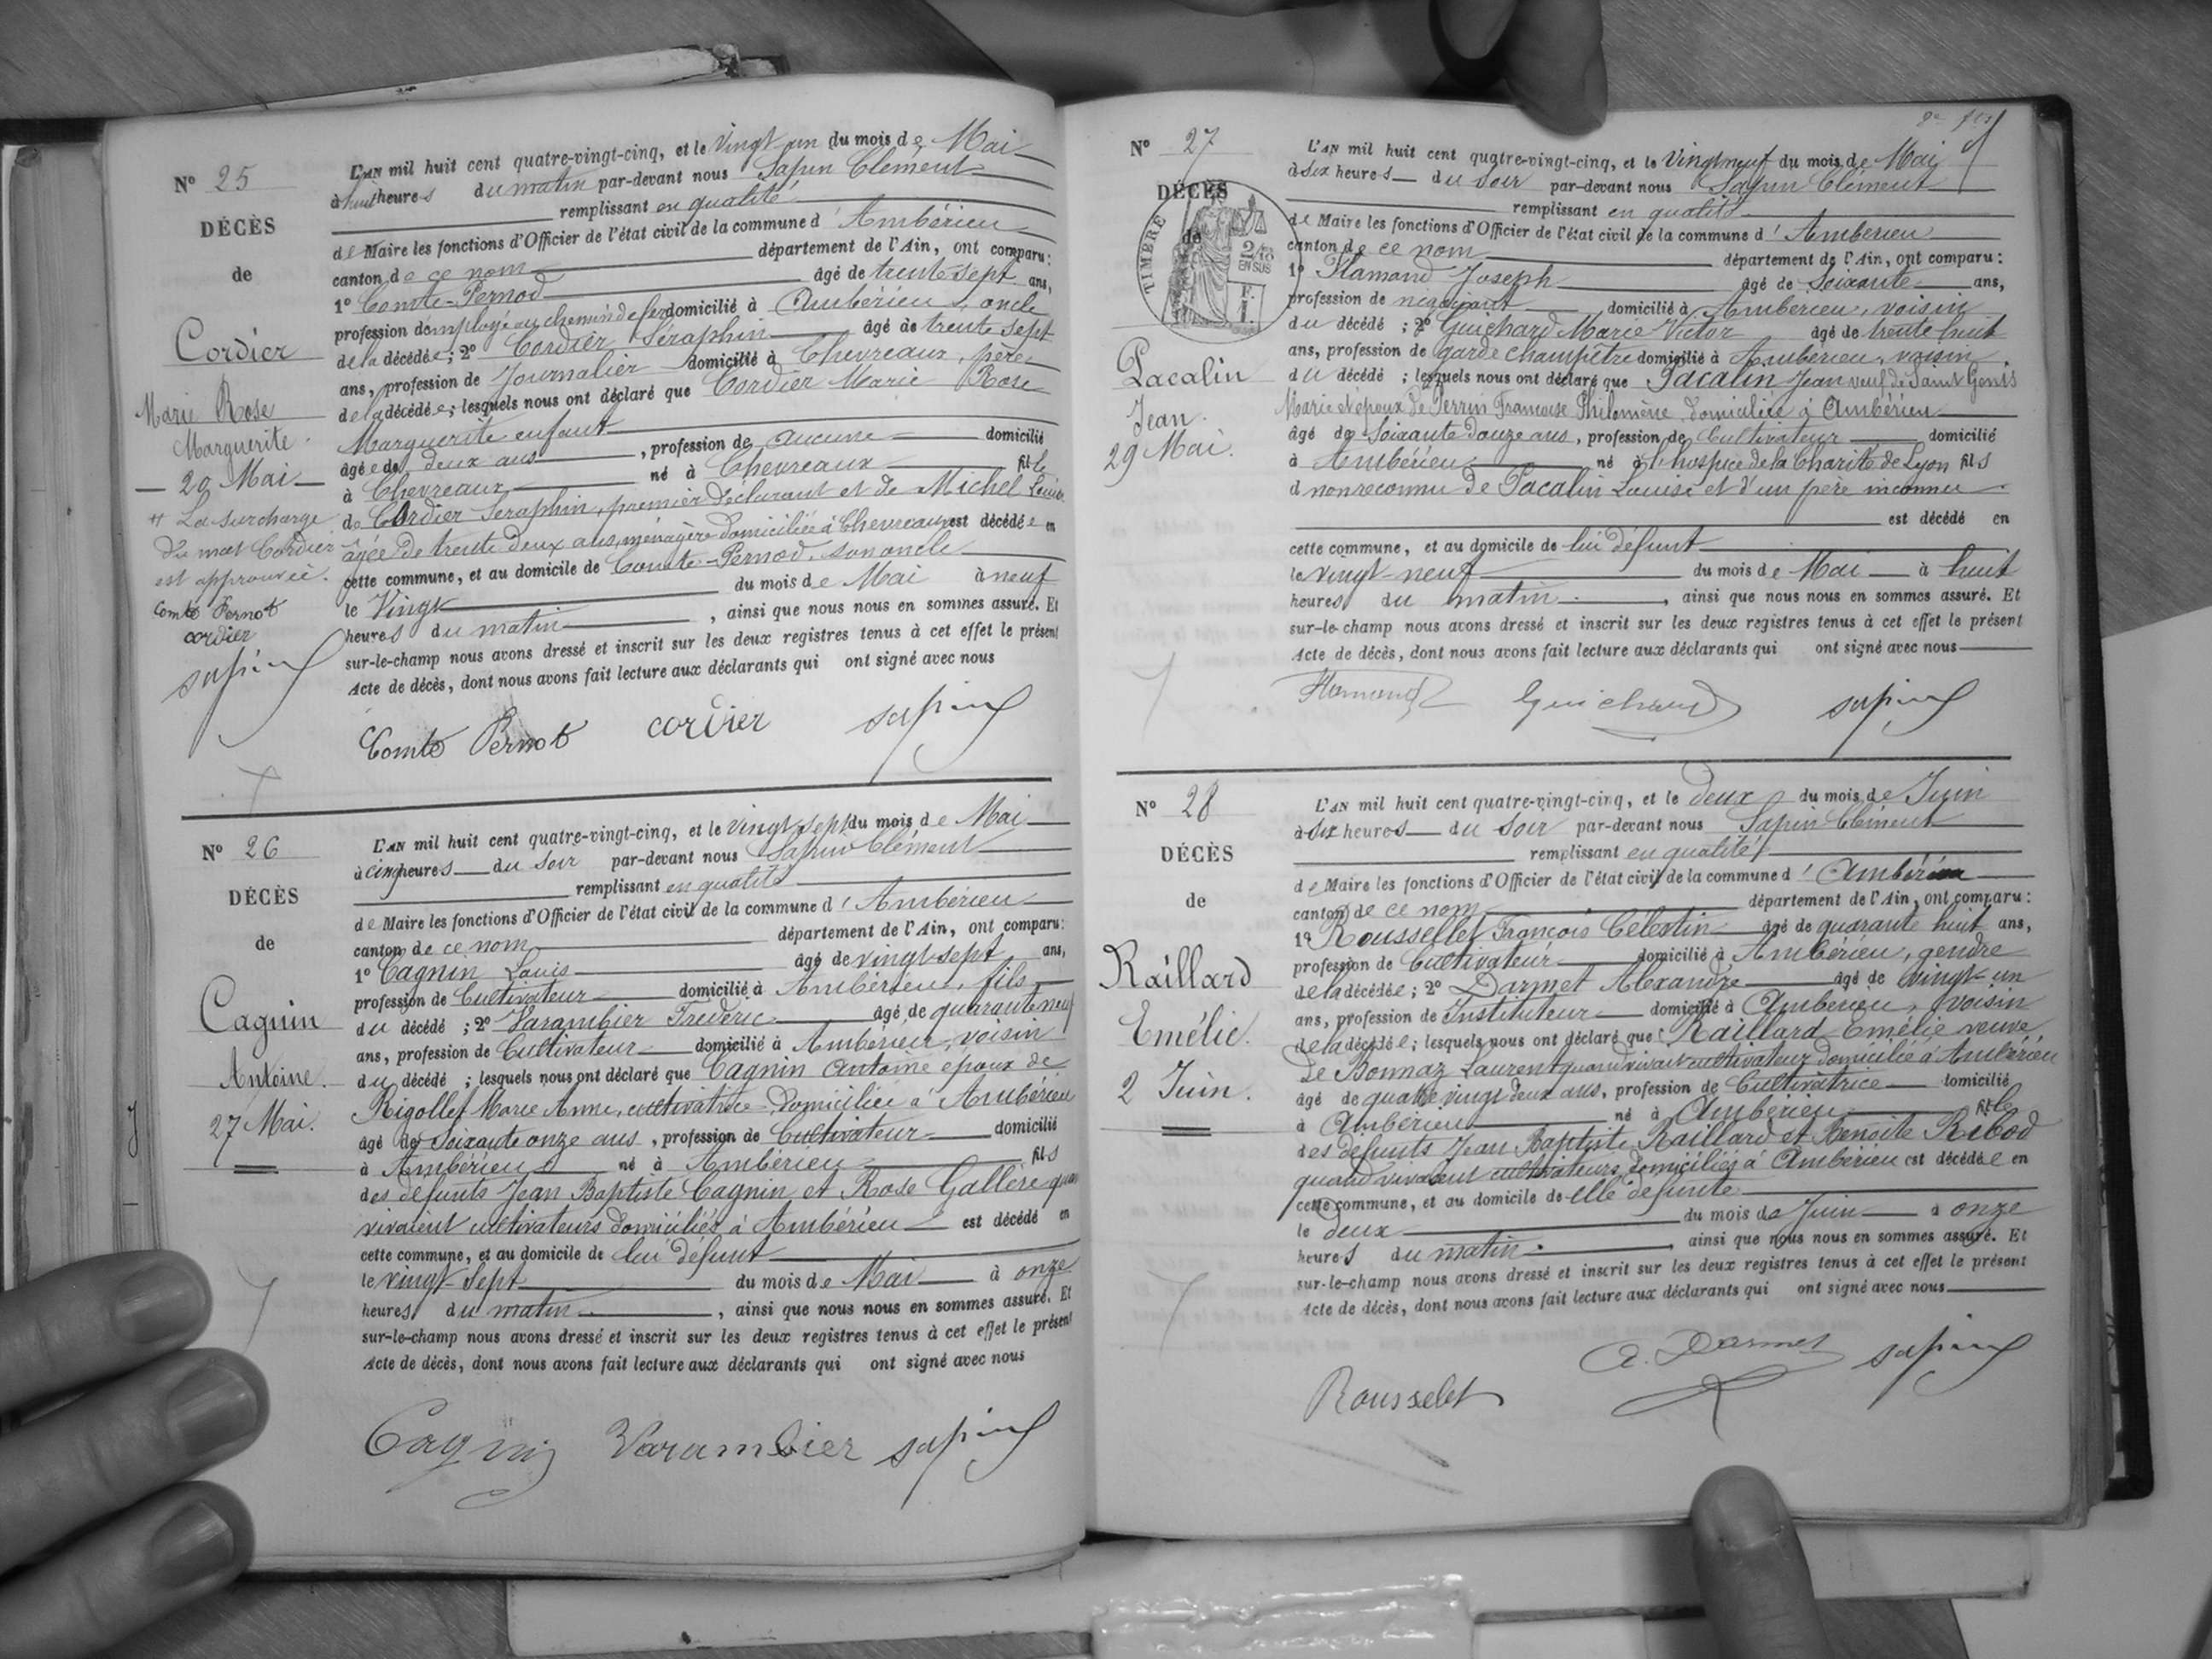 N° 25
DÉCÈS
de
Cordier
Marie Rose
Marguerite.
20 Mai
La surcharge
du mot Cordier
est approuvée.
Comte Pernot
cordier
sapin
L'AN mil huit cent quatre-vingt-cinq, et le Vingt un du mois de Mai
à huit heures du matin par-devant nous Sapin Clément
remplissant en qualité
de Maire les fonctions d'Officier de l'état civil de la commune d'Ambérieu
canton de ce nom département de l'Ain, ont comparu:
1° Comte-Pernod âgé de trente sept ans,
profession d'employé au chemin de fer domicilié à Ambérieu, oncle
de la décédée; 2° Cordier Séraphin âgé de trente sept
ans, profession de Journalier domicilié à Chevreaux, père
de la décédée; lesquels nous ont déclaré que Cordier Marie Rose
Marguerite enfant
âgée de deux ans, profession de aucune domicilié
à Chevreaux né à Chevreaux fille
de Cordier Seraphin, premier déclarant et de Michel Louise
âgée de trente deux ans, ménagère domiciliée à Chevreaux est décédée en
cette commune, et au domicile de Comte-Pernod, son oncle
le Vingt du mois de Mai à neuf
heures du matin, ainsi que nous nous en sommes assuré. Et
sur-le-champ nous avons dressé et inscrit sur les deux registres tenus à cet effet le présent
Acte de décès, dont nous avons fait lecture aux déclarants qui ont signé avec nous
Comte Pernot cordier sapin
N° 26
DÉCÈS
de
Cagnin
Antoine.
27 Mai.
L'AN mil huit cent quatre-vingt-cinq, et le Vingt sept du mois de Mai
à cinq heures du soir par-devant nous Sapin Clément
remplissant en qualité
de Maire les fonctions d'Officier de l'état civil de la commune d'Ambérieu
canton de ce nom département de l'Ain, ont comparu:
1° Cagnin Louis âgé de vingt-sept ans,
profession de Cultivateur domicilié à Ambérieu, fils
du décédé ; 2° Varambier Frédéric âgé de quarante neuf
ans, profession de Cultivateur domicilié à Ambérieu, voisin
du décédé ; lesquels nous ont déclaré que Cagnin Antoine époux de
Rigollet Marie Anne, cultivatrice domiciliée à Ambérieu
âgé de Soixante onze ans, profession de Cultivateur domicilié
à Ambérieu né à Ambérieu fils
des défunts Jean Baptiste Cagnin et Rose Gallere quan
vivaient cultivateurs domiciliés à Ambérieu est décédé en
cette commune, et au domicile de lui défunt
le vingt-sept du mois de Mai à onze
heures du matin, ainsi que nous nous en sommes assuré. Et
sur-le-champ nous avons dressé et inscrit sur les deux registres tenus à cet effet le présent
Acte de décès, dont nous avons fait lecture aux déclarants qui ont signé avec nous
Cagnin Varambier sapin
N° 27
DÉCÈS
de
TIMBRE
2/10
EN SUS
Pacalin
Jean.
29 Mai.
L'AN mil huit cent quatre-vingt-cinq, et le Vingtneuf du mois de Mai
à six heures du soir par-devant nous Sapin Clément
remplissant en qualité
de Maire les fonctions d'Officier de l'état civil de la commune d'Ambérieu
canton de ce nom département de l'Ain, ont comparu:
1° Flamand Joseph âgé de Soixante ans,
profession de négociant domicilié à Amberieu, voisin
du décédé ; 2° Guichard Marie Victor âgé de trente huit
ans, profession de garde champêtre domicilié à Ambérieu, voisin
du décédé ; lesquels nous ont déclaré que Pacalin Jean veuf de Saint Genis
Marie et époux de Perrin Françoise Philomène domiciliée à Ambérieu
âgé de Soixante douze ans, profession de Cultivateur domicilié
à Ambérieu né à l'hospice de la Charité de Lyon fils
d non reconnu de Pacalin Louise et d'un père inconnu
est décédé en
cette commune, et au domicile de lui défunt
le vingt-neuf du mois de Mai à huit
heures du matin, ainsi que nous nous en sommes assuré. Et
sur-le-champ nous avons dressé et inscrit sur les deux registres tenus à cet effet le présent
Acte de décès, dont nous avons fait lecture aux déclarants qui ont signé avec nous
Flamand Guichard sapin
N° 28
DÉCÈS
de
Raillard
Emélie.
2 Juin.
L'AN mil huit cent quatre-vingt-cinq, et le deux du mois de Juin
à six heures du soir par-devant nous Sapin Clément
remplissant en qualité
de Maire les fonctions d'Officier de l'état civil de la commune d'Ambérieu
canton de ce nom département de l'Ain, ont comparu:
1° Rousselet François Célestin âgé de quarante huit ans,
profession de Cultivateur domicilié à Ambérieu, gendre
de la décédée; 2° Darmet Alexandre âgé de vingt-un
ans, profession de Instituteur domicilié à Ambérieu, voisin
de la décédée; lesquels nous ont déclaré que Raillard Emélie veuve
de Bonnaz Laurent quand vivait cultivateur domicilié à Ambérieu
âgé de quatre vingt deux ans, profession de Cultivatrice domicilié
à Ambérieu né à Ambérieu fille
des défunts Jean Baptiste Raillard et Benoite Ribod
quand vivaient cultivateurs domiciliés à Ambérieu est décédée en
cette commune, et au domicile de elle défunte
le deux du mois de Juin à onze
heures du matin, ainsi que nous nous en sommes assuré. Et
sur-le-champ nous avons dressé et inscrit sur les deux registres tenus à cet effet le présent
Acte de décès, dont nous avons fait lecture aux déclarants qui ont signé avec nous
Rousselet A. Darmet sapin